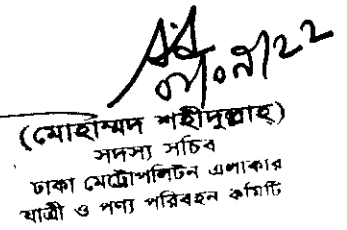 ০১/০৯/২২
(মোহাম্মদ শহীদুল্লাহ)
সদস্য সচিব
ঢাকা মেট্রোপলিটন এলাকার
যাত্রী ও পণ্য পরিবহন কমিটি